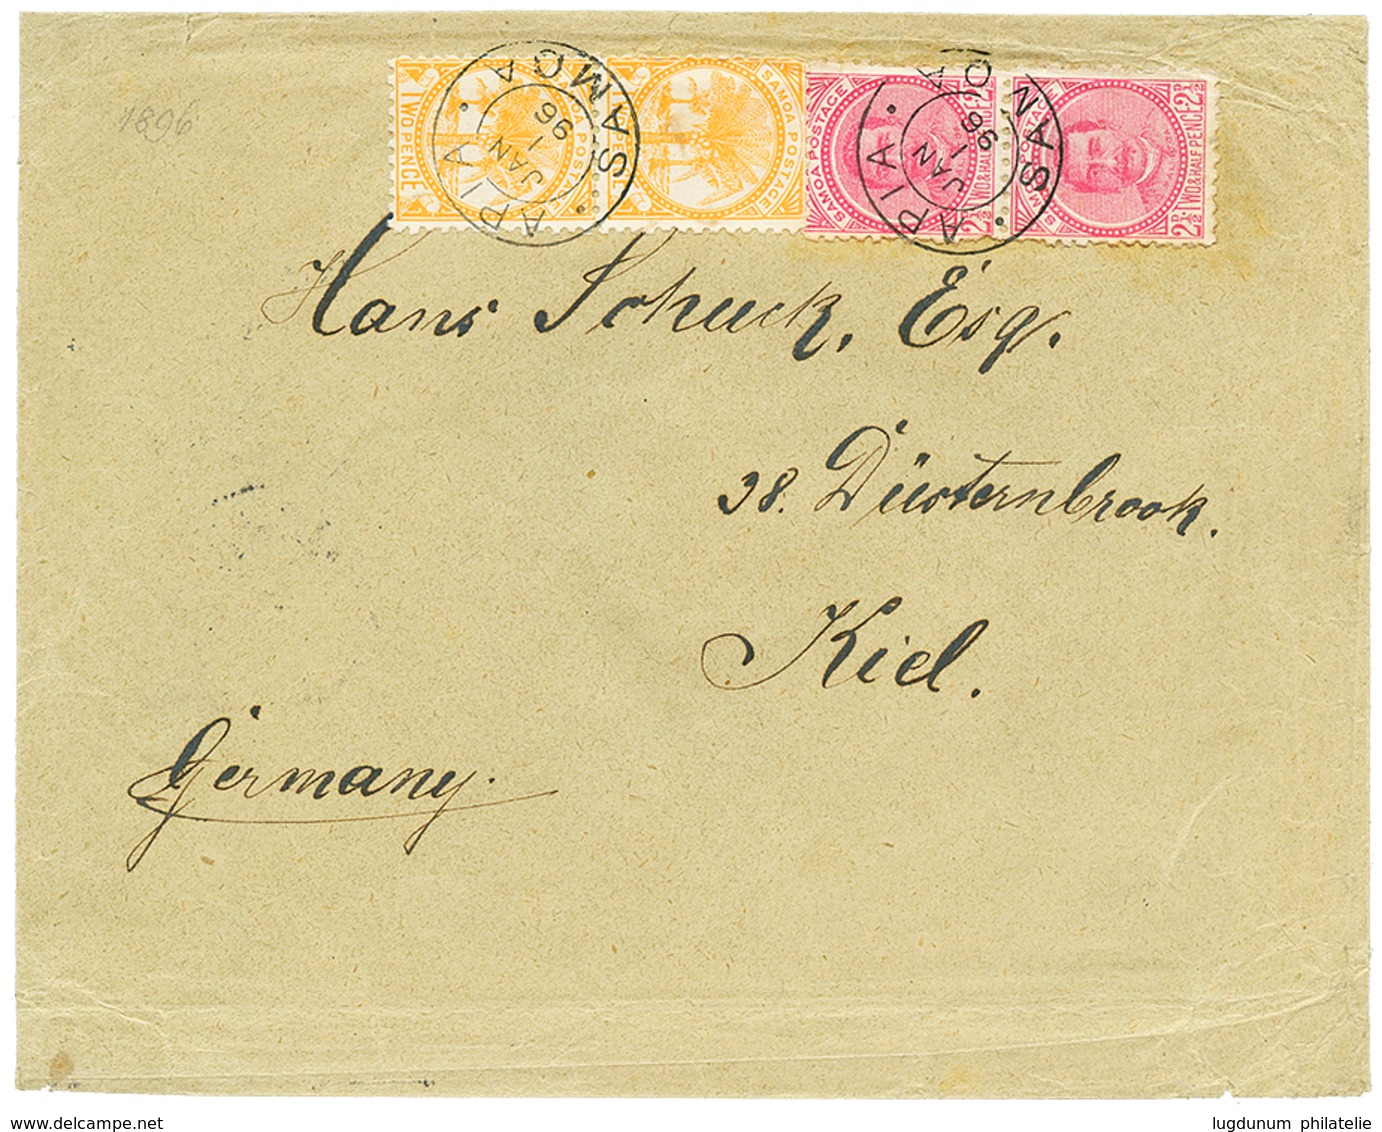 1896
TWO PENCE
SAMOA POSTAGE
SAMOA POSTAGE
2½D. TWO & HALF PENCE 2½D
SAMOA POSTAGE
2½D. TWO & HALF PENCE 2½D
APIA · SAMOA ·
JAN 1 96
APIA · SAMOA ·
JAN 1 96
Hans Schuck, Esq.
38. Düsternbrook.
Kiel.
Germany.
www.delcampe.net
lugdunum philatelie